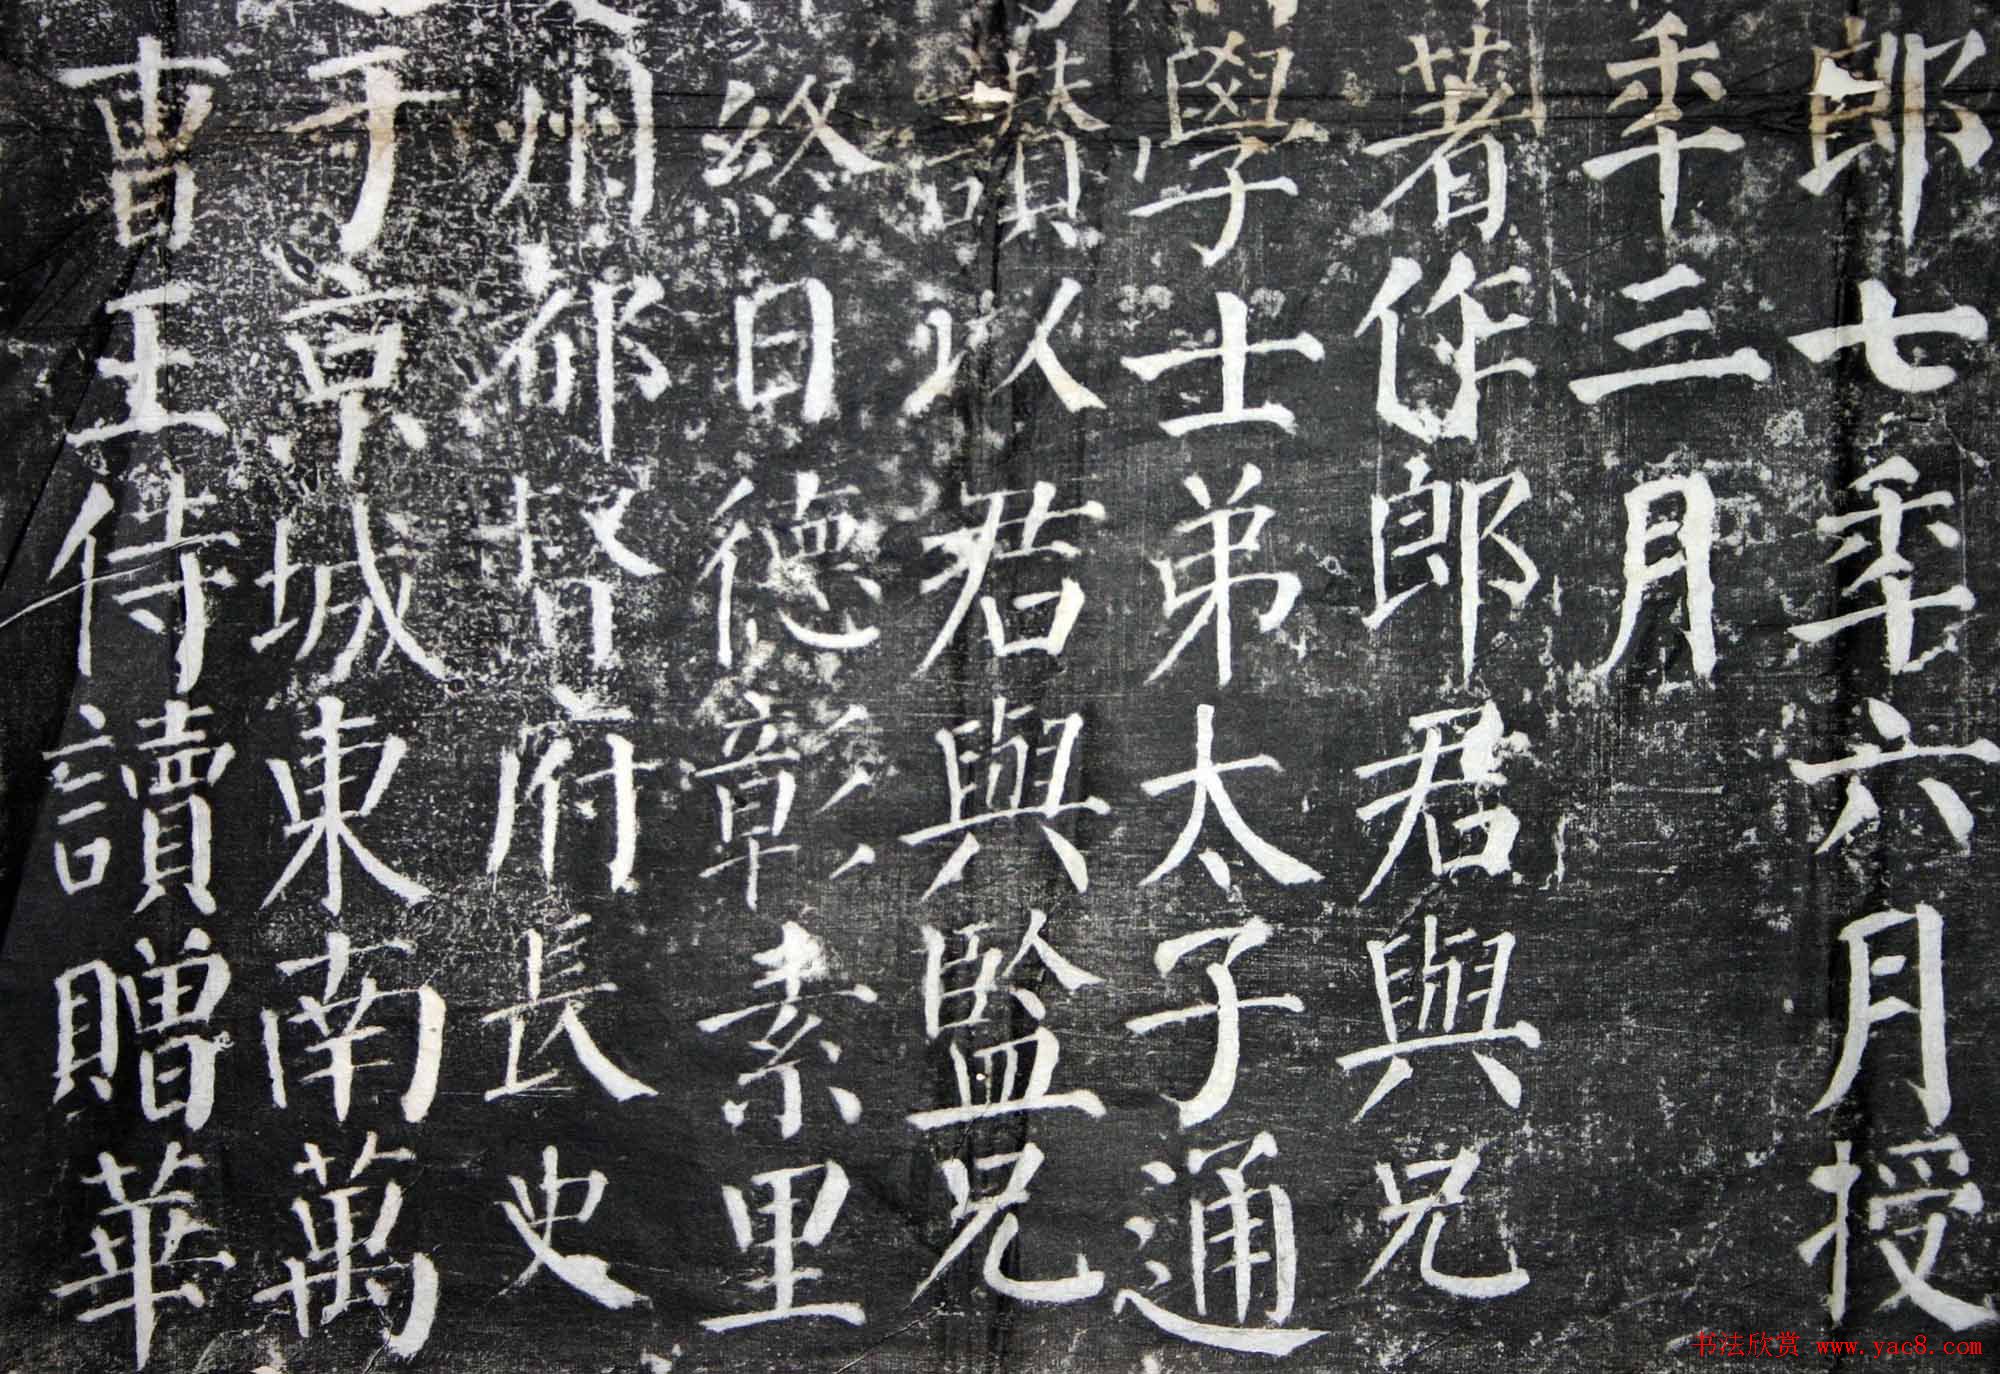 郎七年六月授
年三月
著作郎君與兄
學士弟太子通
讃以君與監兄
終日德彰素里
州都督府長史
于京城東南萬
曹王侍讀贈華
书法欣赏 www.yac8.com